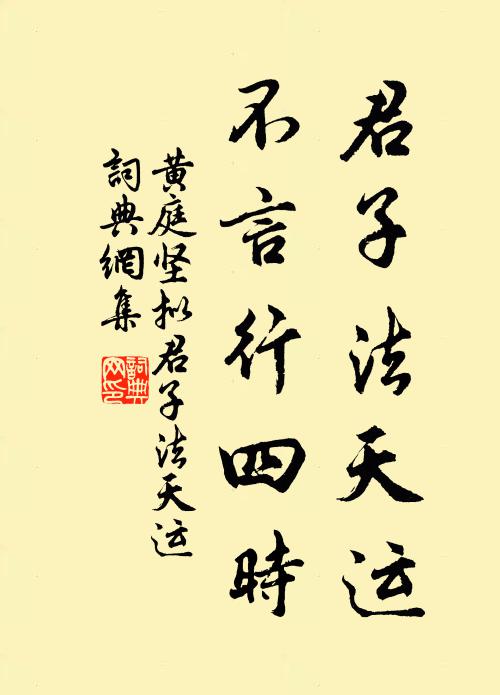 君子法天运
不言行四時
黄庭坚拟君子法天运
詞典網集
詞典网印